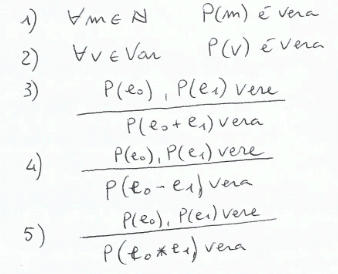 1) ∀m ∈ ℕ P(m) è vera
2) ∀v ∈ Var P(v) è vera
3) P(e₀), P(e₁) vere
P(e₀ + e₁) vera
4) P(e₀), P(e₁) vere
P(e₀ - e₁) vera
5) P(e₀), P(e₁) vere
P(e₀ * e₁) vera